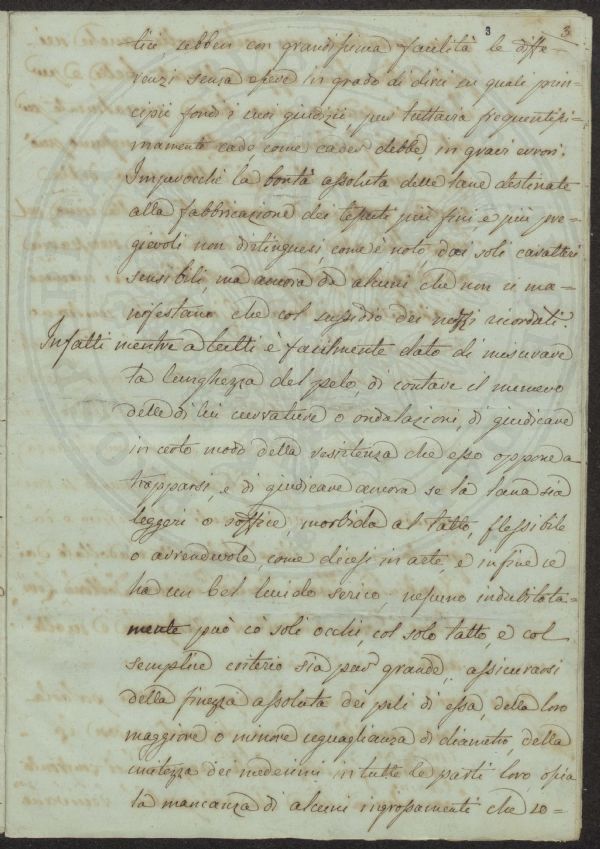 3 3
tice, sebben con grandissima facilità le diffe-
renzi senza essere in grado di dirci su quali prin-
cipii fondi i suoi giudizii, pur tuttavia frequentissi-
mamente cade come cader debbe in gravi errori.
Imperocchè la bontà assoluta delle lane destinate
alla fabbricazione dei tessuti più fini e più pre-
gievoli non distinguesi come è noto, dai soli caratteri
sensibili, ma ancora da alcuni che non si ma-
nifestano che col sussidio dei mezzi ricordati.
Infatti mentre a tutti è facilmente dato di misurare
la lunghezza del pelo, di contare il numero
delle di lui curvature o ondulazioni, di giudicare
in certo modo della resistenza che esso oppone a
strapparsi, e di giudicare ancora se la lana sia
leggeri o soffice, morbida al tatto, flessibile
o arrendevole, come dicesi in arte, e infine se
ha un bel lucido serico; nessuno indubitata-
mente può cò soli occhi, col solo tatto, e col
semplice criterio sia pur grande, assicurarsi
della finezza assoluta dei peli di essa, della loro
maggiore o minore eguaglianza di diametro, della
unitezza dei medesimi in tutte le parti loro, ossia
la mancanza di alcuni ingrossamenti che so-